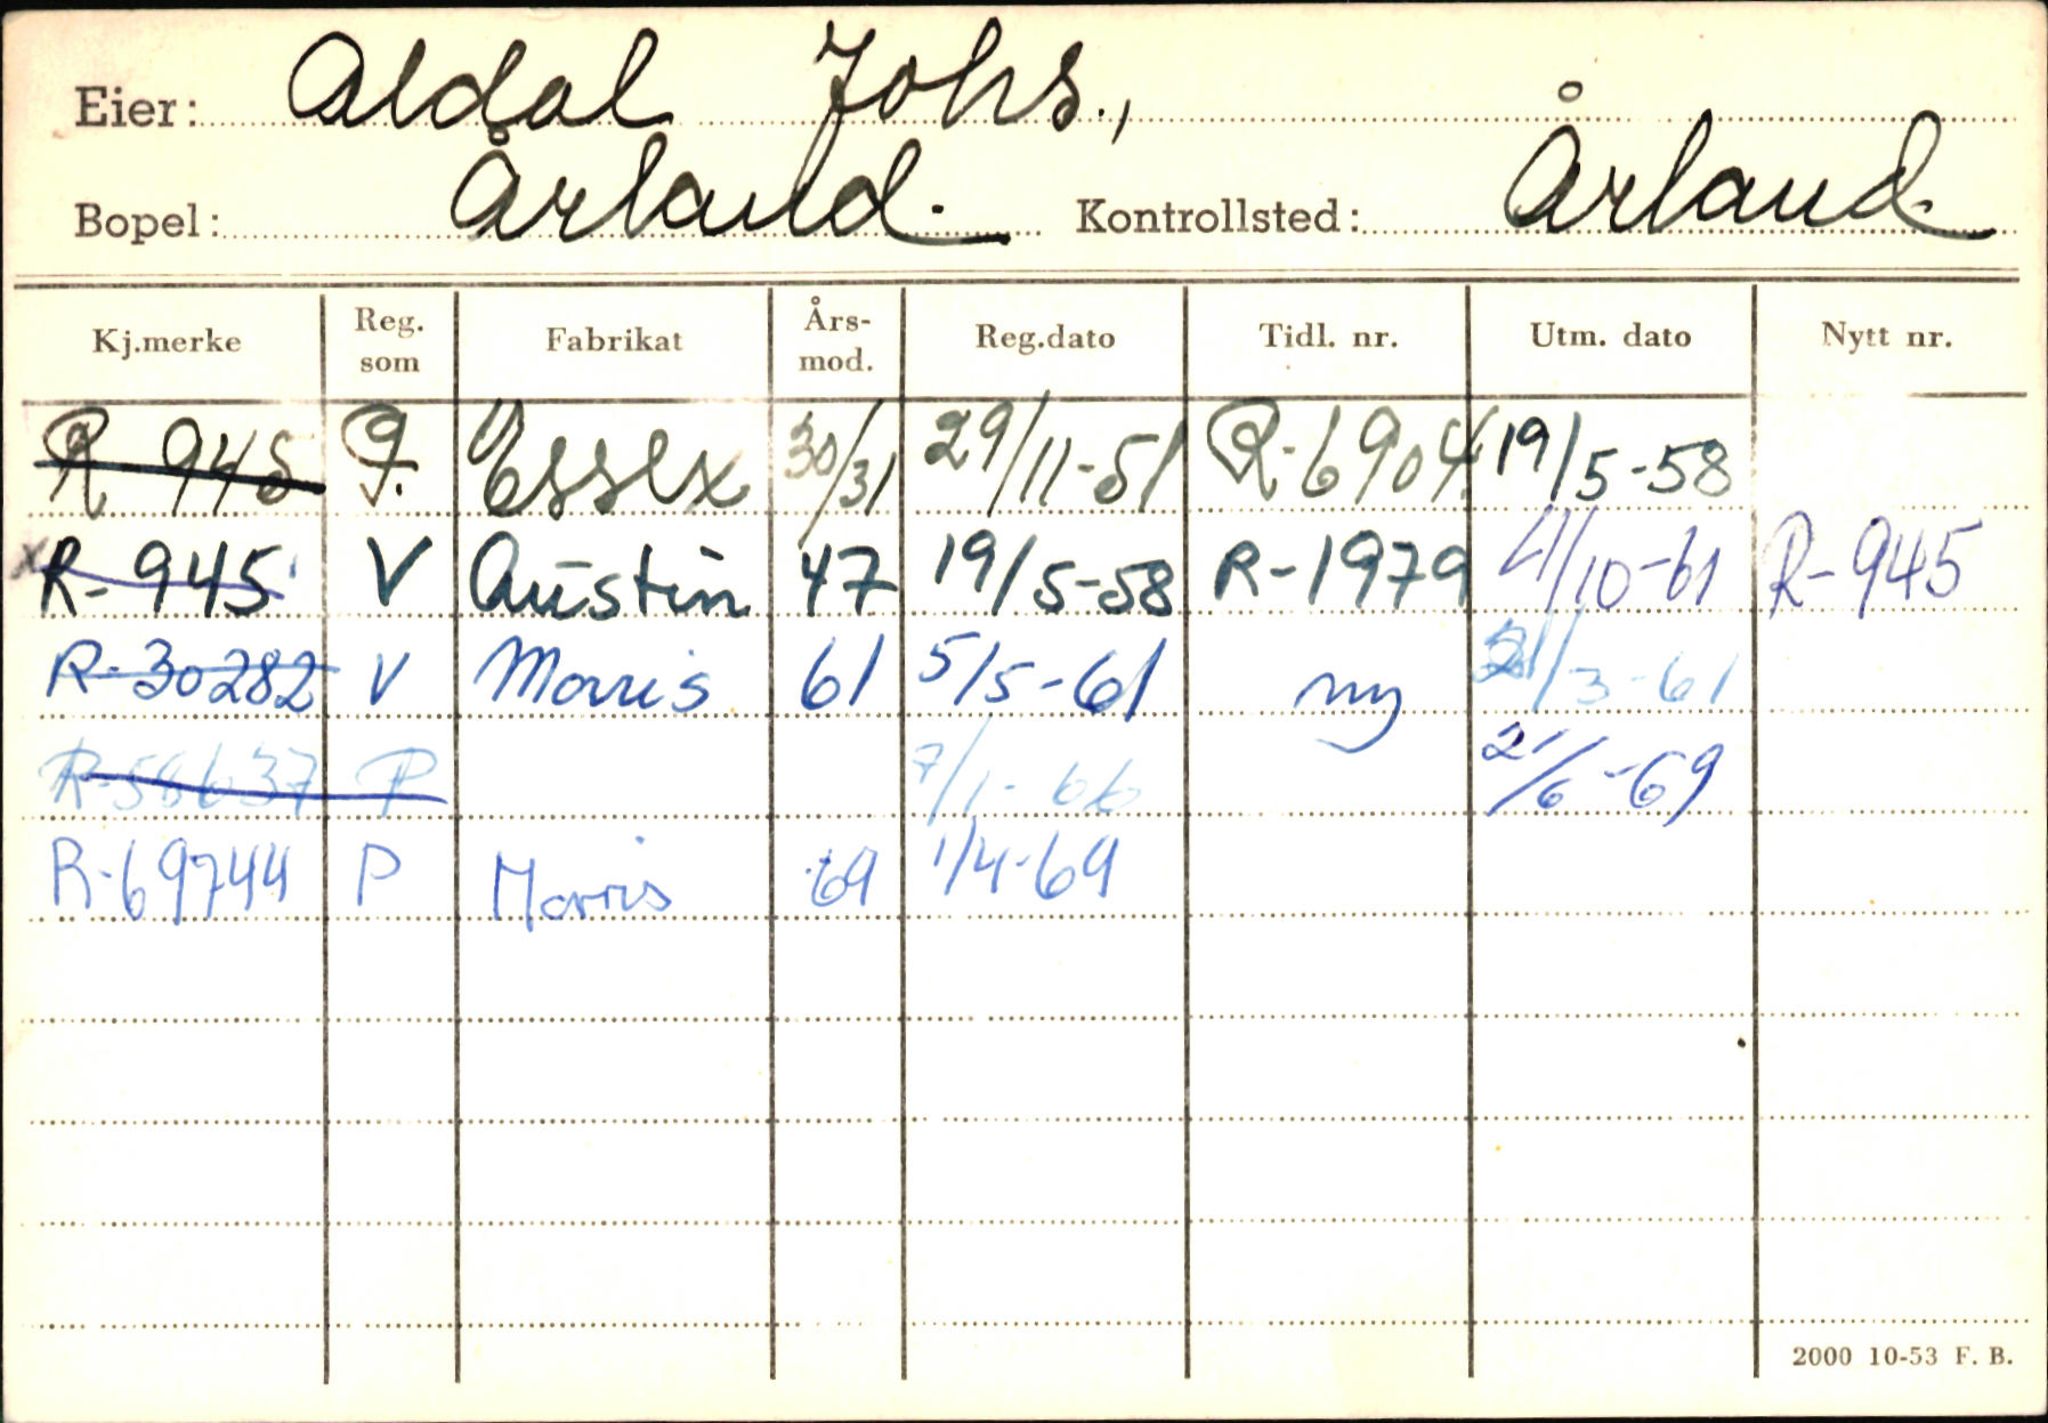 Eier: Aldal Johs.,
Bopel: Årland. Kontrollsted: Årland
Kj.merke Reg. som Fabrikat Års-mod. Reg.dato Tidl. nr. Utm. dato Nytt nr.
R 945 P. Essex 30/31 29/11-51 R-6904 19/5-58
x R-945 V Austin 47 19/5-58 R-1979 4/10-61 R-945
R-30282 V Morris 61 5/5-61 ny /3-61
R-58637 P 7/1-66 21/6-69
R-69744 P Morris 69 1/4-69
2000 10-53 F. B.